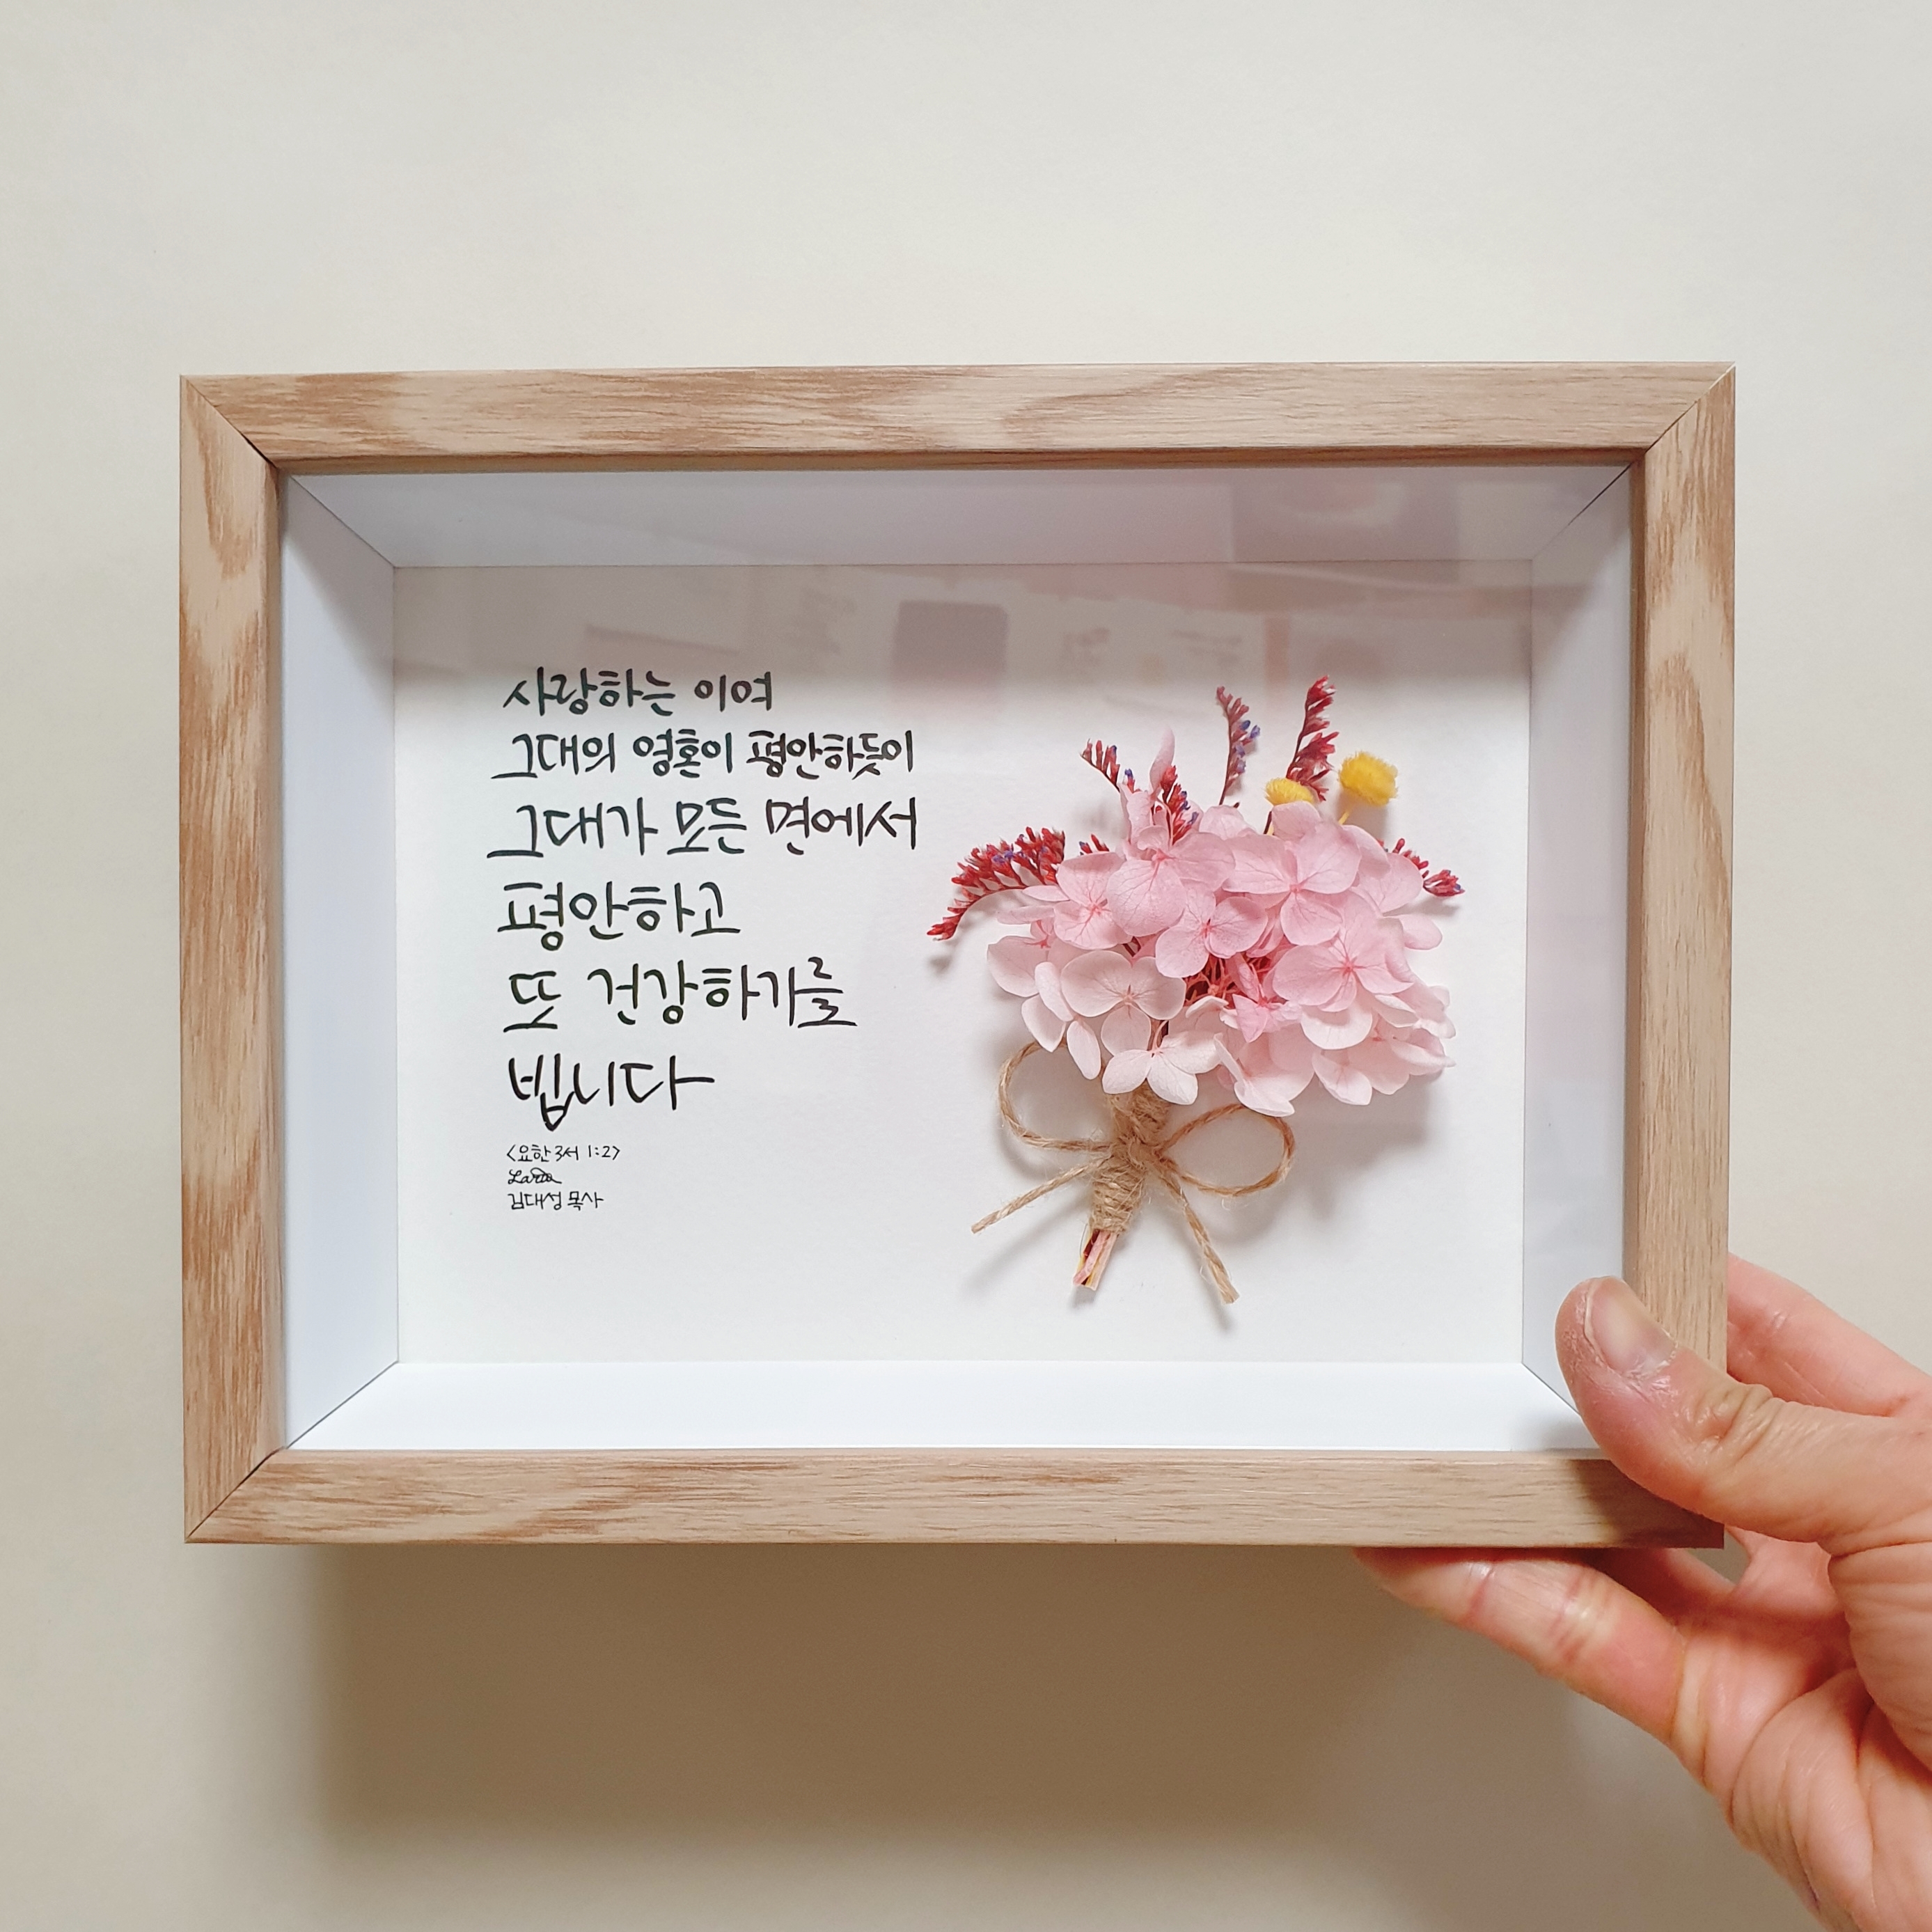 사랑하는 이여
그대의 영혼이 평안하듯이
그대가 모든 면에서
평안하고
또 건강하기를
빕니다
<요한3서 1:2>
김대성 목사